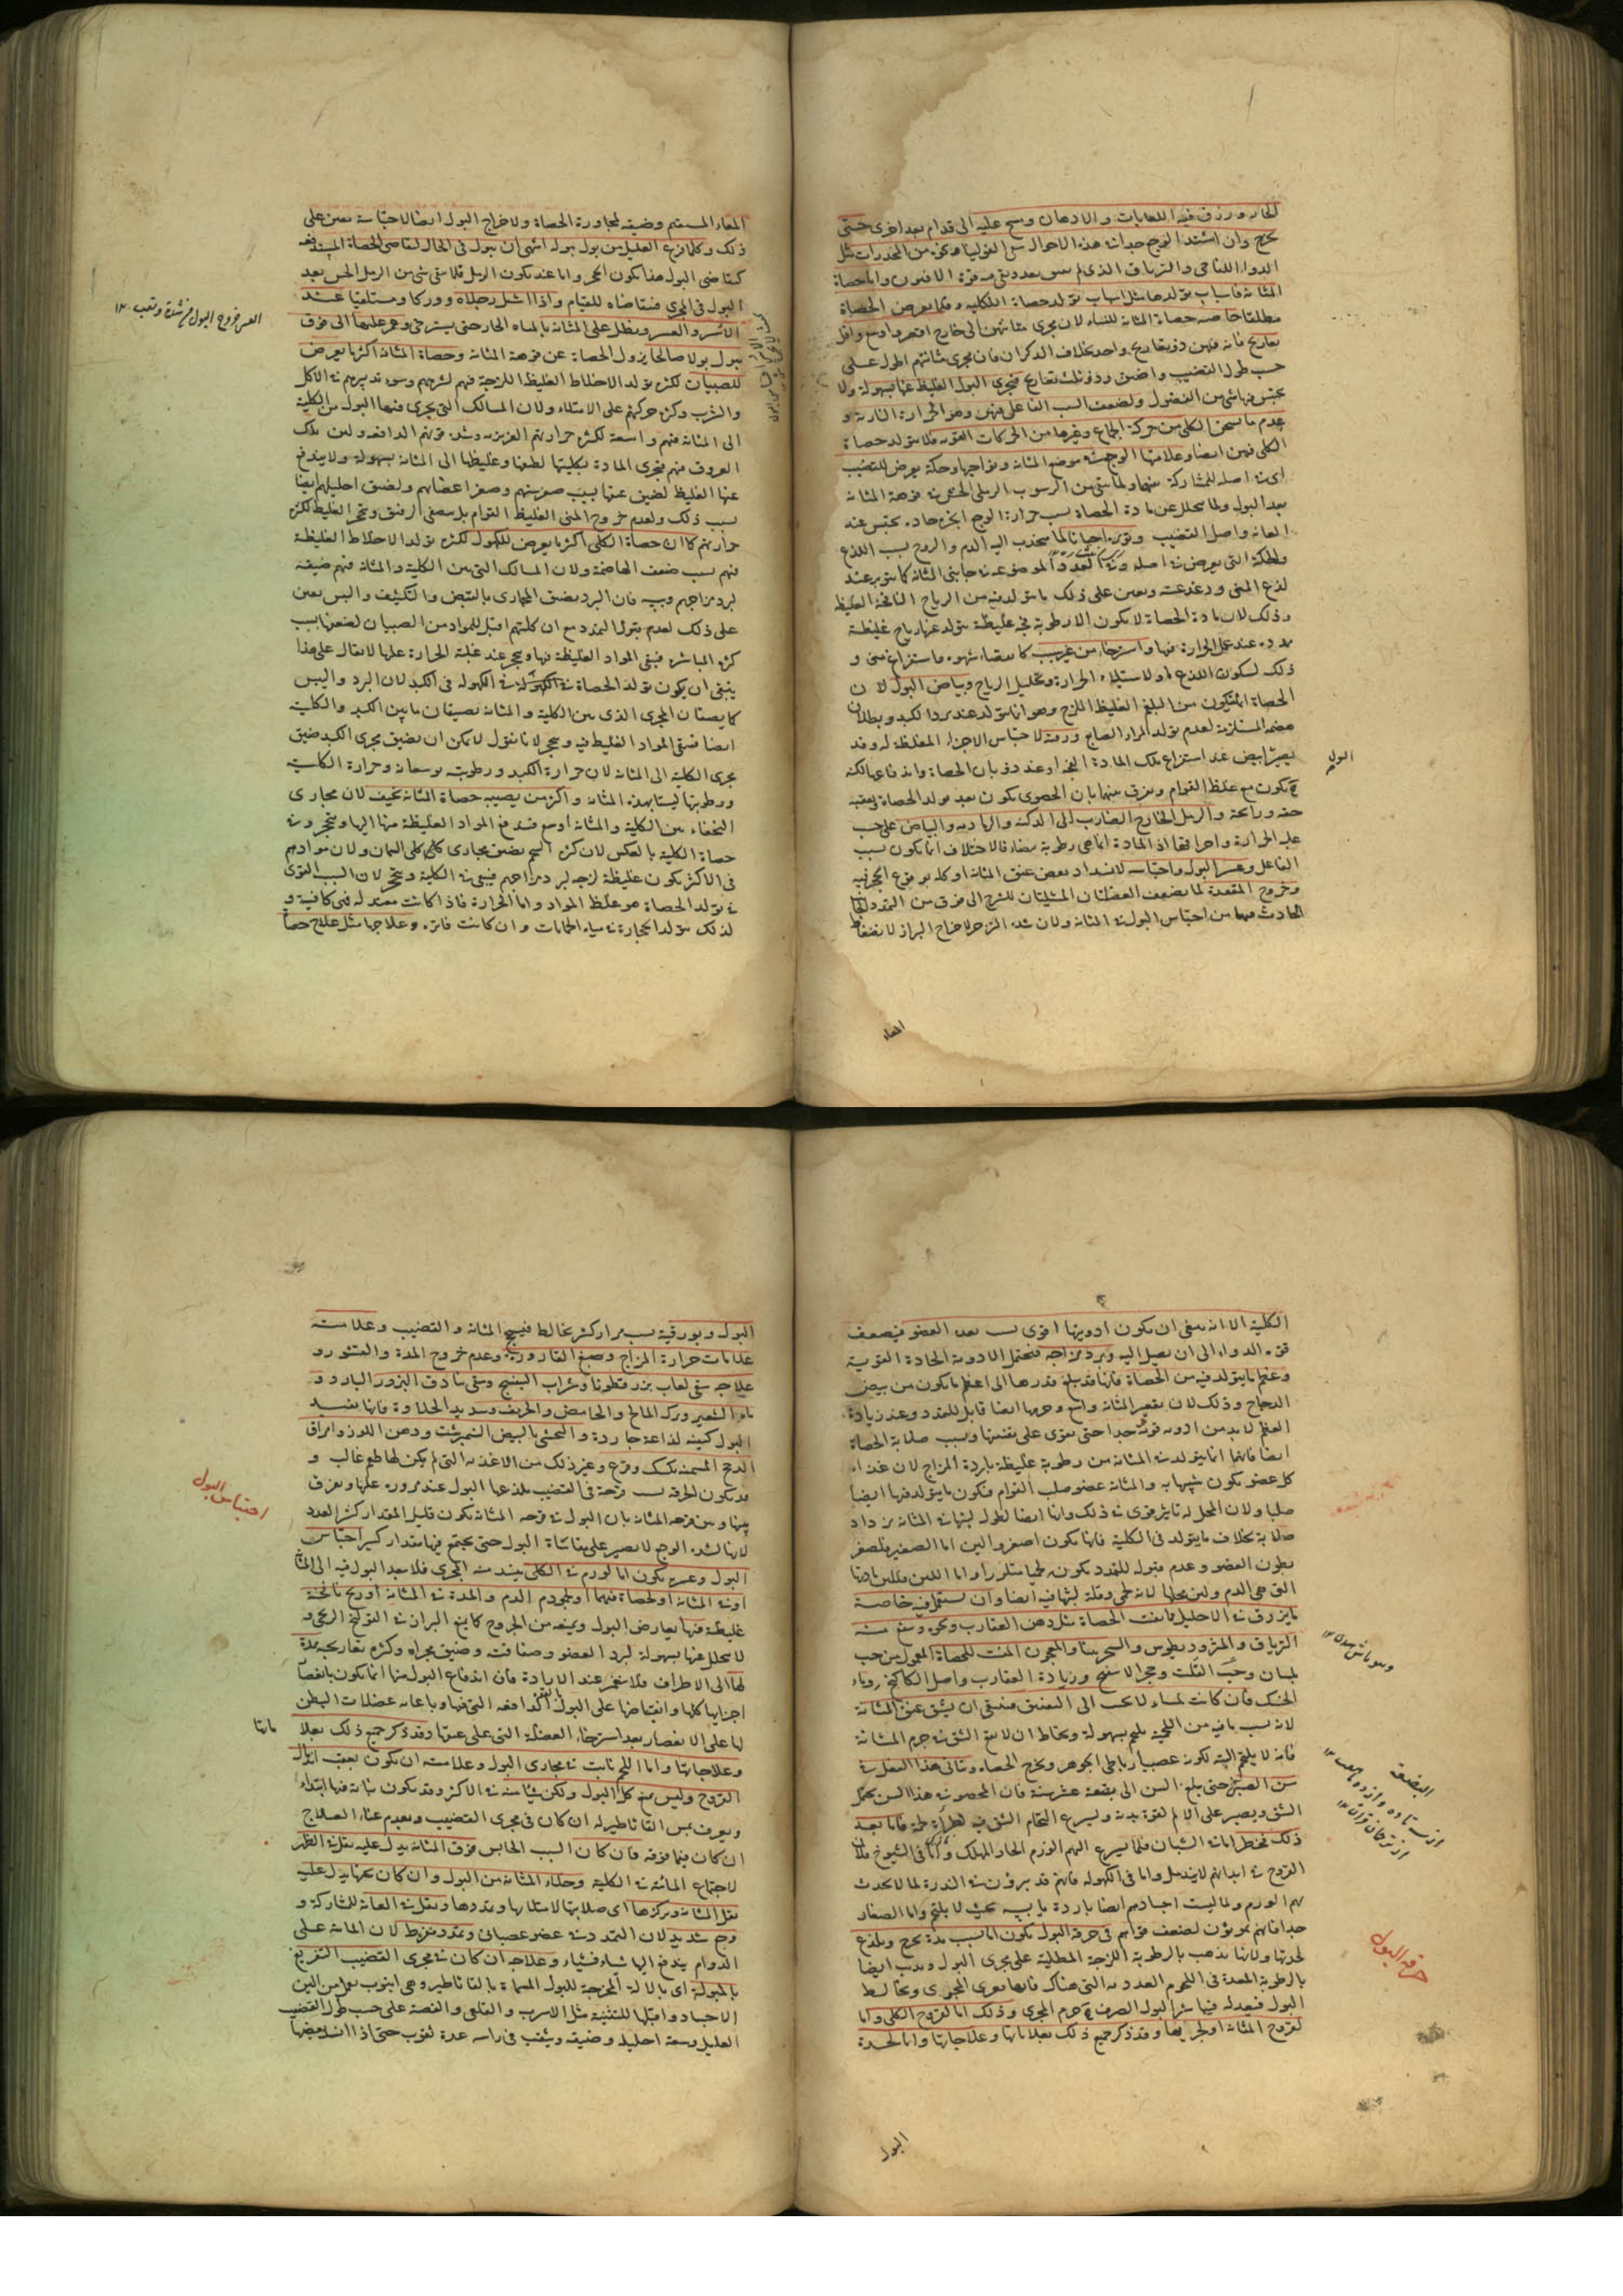 الحار ورزق فيه اللعابات والادهان وسح عليه الى قدام بعد اخرى حتى
يخرج وان اشتد الوجع جدا في هذه الاحوال سقى الفولونيا وغيره من المخدرات مثل
الدواء اللفاحى والترياق الذى لم بعد فيه قوة الافيون واما حصاة
المثانة فاسباب تولدها مثل اسباب تولد حصاة الكلية وقلما يعرض الحصاة
خاصة حصاة المثانة للنساء لان مجرى مثانتهن الى خارج اقصر واوسع واقل
تعاريج فانه فيهن ذو تعاريج واحد بخلاف الذكران فان مجرى مثانتهم اطول على
حسب طول القضيب واضيق وذو ثلث تعاريج فيجرى البول الغليظ عنها بسهولة ولا
يحتبس فيها شئ من الفضول ولضعف السبب الفاعل فيهن وهو الحرارة النارية و
عدم ما يسخن الكلى من حركة الجماع وغيرها من الحركات القوية فلا يتولد حصاة
الكلى فيهن ايضا وعلامتها الوجع في موضع المثانة ونواحيها وحكة يعرض للقضيب
اى في اصله للمشاركة بينهما ولما من الرسوب الرملى الخشن في فوهة المثانة
بعد البول ولما يتحلل عن مادة الحصاة بسبب حرارة الوجع ابخرة حادة يحتبس عند
العانة واصل القضيب وتوتره احيانا لما ينجذب اليه الدم والروح بسبب اللذع
والحكة التى يعرض في اصله الموضوعة في جانبى المثانة كما يتوتر عند
لذع المنى ودغدغته ويعين على ذلك ما يتولد فيه من الرياح النافخة الغليظة
وذلك لان مادة الحصاة لا يكون الا رطوبة فجة غليظة يتولد عنها رياح غليظة
ممددة عند عمل الحرارة فيها واسترخاء من غير سبب كانقضاء شهوة واستفراغ منى و
ذلك لسكون اللذع او لاستيلاء الحرارة وتحليل الرياح وبياض البول لان
الحصاة انما يكون من البلغم الغليظ اللزج وهو انما يتولد عند برد الكبد وبطلان
هضمه المستلزمة لعدم تولد المرار الصابغ ورقته لاحتباس الاجزاء المغلظة له وقد
يصير ابيض عند استفراغ تلك المادة الفجة او عند ذوبان الحصاة واندفاعها لكنه
يكون مع غلظ القوام ويفرق بينهما بان الحصوى يكون بعد تولد الحصاة ويعقبه
خفة وراحة والرمل الخارج الضارب الى الدكنة والرمادية والبياض على حسب
عمل الحرارة واحراقها اذ المادة انما هى رطوبة بيضاء فالاختلاف انما يكون بسبب
الفاعل وعسر البول واحتباسه لانسداد بعض عنق المثانة او كله بوقوع الحجر فيه
وخروج المقعدة لما يضعف العضلتان المشيلتان للشرج الى فوق من التمدد
الحادث فيهما من احتباس البول في المثانة ولان شدة الزحير لاخراج البراز لانضغاط
البول
المعاء
المعاء المستقيم وضيقه لمجاورة الحصاة ولاخراج البول ايضا لاحتباسه يعين على
ذلك وكلما فرغ العليل من بول يبوله اشتهى ان يبول فى الحال لتقاضى الحصاة المستدفعة
كتقاضى البول هذا يكون للحجر واما عند تكون الرمل فلا يبقى شئ من الرمل الخشن بعد
البول فى المجرى فيتقاضاه للقيام واذا اشيل رجلاه ووركاه مستلقيا عند
الاسر والعسر وينطل على المثانة بالماء الحار حتى يسترخى وغمز عليها الى فوق
يبول بولا صالحا يزول الحصاة عن فوهة المثانة وحصاة المثانة اكثرها يعرض
للصبيان لكثرة تولد الاخلاط الغليظة اللزجة فيهم لشرههم وسوء تدبيرهم في الاكل
والشرب وكثرة حركتهم على الامتلاء ولان المسالك التى يجرى فيها البول من الكلية
الى المثانة فيهم واسعة لكثرة حرارتهم الغريزية وشدة قوتهم الدافعة ولين تلك
العروق منهم فيجرى المادة بكليتها لطيفها وغليظها الى المثانة بسهولة ولا يندفع
عنها الغليظ لضيق عنقها بسبب صغر سنهم وصغر اعضائهم ولضيق احليلهم ايضا
بسبب ذلك ولعدم خروج المنى الغليظ القوام بل يصفى الرقيق ويتحجر الغليظ لكثرة
حرارتهم كما ان حصاة الكلى اكثرها يعرض للكهول لكثرة تولد الاخلاط الغليظة
فيهم بسبب ضعف الهاضمة ولان المسالك التى بين الكلية والمثانة فيهم ضيقة
لبرد مزاجهم ويبسه فان البرد يضيق المجارى بالقبض والتكثيف واليبس يعين
على ذلك لعدم قبول التمدد مع ان كليتهم اقبل للمواد من الصبيان لضعفها بسبب
كثرة المباشرة فيبقى المواد الغليظة فيها ويتحجر عند غلبة الحرارة عليها لا يقال على هذا
ينبغى ان يكون تولد الحصاة في الكهولة فى الكبد لان البرد واليبس
كما يضيقان المجرى الذى بين الكلية والمثانة يضيقان ما بين الكبد والكلية
ايضا فيبقى المواد الغليظة فيه ويتحجر لانا نقول لا يمكن ان يضيق مجرى الكبد ضيق
مجرى الكلية الى المثانة لان حرارة الكبد ورطوبته بوسطانه وحرارة الكلية
ورطوبتها ليستا بهذه المثابة واكثر من يصيبه حصاة المثانة نحيف لان مجارى
النحفاء بين الكلية والمثانة اوسع فيندفع المواد الغليظة منها اليها ويتحجر وفى
حصاة الكلية بالعكس لان كثرة الشحم يضيق مجارى كلى السمان ولان موادهم
فى الاكثر يكون غليظة لزجة لبرد مزاجهم فيبقى في الكلية ويتحجر لان السبب القوى
في تولد الحصاة هو غلظ المواد واما الحرارة فاذا كانت معتدلة فهى كافية و
لذلك يتولد الحجارة في مياه الحمامات وان كانت فاترة وعلاجها مثل علاج حصاة
العسر خروج البول مع شدة وتعب ١٢
الكلية الا انه ينبغى ان يكون ادويتها اقوى بسبب بعد العضو فيضعف
قوة الدواء الى ان يصل اليه وبرد مزاجه فيحتمل الادوية الحادة القوية
وعظم ما يتولد فيه من الحصاة فانها قد يبلغ قدرها الى اعظم ما يكون من بيض
الدجاج وذلك لان تقعير المثانة واسع وجرمها ايضا قابل للتمدد وعند زيادة
العظم لا بد من ادوية قوية جدا حتى يقوى على تفتيتها وبسبب صلابة الحصاة
ايضا فانها انما يتولد في المثانة من رطوبة غليظة باردة المزاج لان غذاء
كل عضو يكون شبيها به والمثانة عضو صلب القوام فيكون ما يتولد فيها ايضا
صلبا ولان المحل له تاثير قوى في ذلك وانها ايضا لطول لبثها في المثانة يزداد
صلابة بخلاف ما يتولد فى الكلية فانها يكون اصغر والين اما الصغر فلصغر
بطون العضو وعدم قبوله للتمدد لكونه لحميا متلززا واما اللين فللين مادتها
التى هى الدم ولين محلها لانه لحمى وقلة لبثها فيه ايضا وان يستعمل فيه خاصة
ما يزرق في الاحليل فيفتت الحصاة مثل دهن العقارب ونحوه وسقى منه
الترياق والمثروديطوس والسجزينيا والمعجون المفتت للحصاة المعمول من حب
بلسان وحب القلت وحجر الاسفنج وزيادة العقارب واصل الكاكنج ودواء
الحسك فان كانت لمساء لا يجب الى التفتيت فينبغى ان يشق عنق المثانة
لانه بسبب ما فيه من اللحمية يلتحم بسهولة ويحتاط ان لا يقع الشق في جرم المثانة
فانه لا يلتحم البتة لكونه عصبيا رباطى الجوهر ويخرج الحصاة ويتاتى هذا العمل في
سن الصبى حتى يبلغ السن الى بضعة عشر سنة فان المحصو في هذا السن يحتمل
الشق ويصبر على الالم لقوة بدنه ويسرع التحام الشق فيه لطراءة لحمه فاما بعد
ذلك فخطر اما في الشبان فلما يسرع اليهم الورم الحار المهلك واما فى الشيوخ فلان
القروح في ابدانهم لا يندمل واما فى الكهولة فانهم قد يبرؤن في الندرة لما لا يحدث
بهم الورم ولما ليست اجسادهم ايضا باردة يابسة بحيث لا يلتحم واما الصغار
جدا فانهم يموتون لضعف قواهم فى حرقة البول يكون اما بسبب مدة يخرج ويلذع
لحدتها ولانها يذهب بالرطوبة اللزجة المطلية على مجرى البول ويذهب ايضا
بالرطوبة المعدة فى اللحوم الغددية التى هناك فانها يغرى المجرى ويخالط
البول فيعدله فيباشر البول الصرف جرم المجرى وذلك اما لقروح الكلى واما
لقروح المثانة او لجربها وقد ذكر جميع ذلك بعلاماتها وعلاجاتها واما لحدة
حرقة البول
البول
البول وبورقيته بسبب مرار كثير يخالطه فيسحج المثانة والقضيب وعلامته
علامات حرارة المزاج وصبغ القارورة وعدم خروج المدة والقشور و
علاجه سقى لعاب بزرقطونا وشراب البنفسج وسقى بنادق البزور الباردة و
ماء الشعير وترك المالح والحامض والحريف وشديد الحلاوة فانها يفيد
البول كيفية لذاعة حارة والتحسى بالبيض النيمبرشت ودهن اللوز وامراق
الدجج المسمنة بكشك وقرع وغير ذلك من الاغذية التى لم يكن لها طعم غالب و
قد يكون الحرقة بسبب قرحة فى القضيب يلذعها البول عند مروره عليها ويفرق
بينها وبين قرحة المثانة بان البول في قرحة المثانة يكون قليل المقدار كثير العدد
لانها لشدة الوجع لا يصبر على مقاساة البول حتى يجتمع فيها مقدار كثير احتباس
البول وعسره يكون اما لورم في الكلى ينسد منه المجرى فلا ينفذ البول فيه الى المثانة
او في المثانة او لحصاة فيهما او لجمود الدم والمدة في المثانة او ريح نافخة
غليظة فيها يعارض البول ويمنعه من الخروج كما يمنع البراز في القولنج الريحى و
لا يتحلل عنها بسهولة لبرد العضو وصفاقته وضيق مجراه وكثرة تعاريجه ممددة
لها الى الاطراف فلا ينعصر عند الارادة فان اندفاع البول منها انما يكون بانقباض
اجزائها كلها وانقباضها على البول بالقوة الدافعة التى فيها وباعانة عضلات البطن
لها على الانعصار بعد استرخاء العضلة التى على عنقها وقد ذكر جميع ذلك بعلا
وعلاجاتها واما للحم نابت في مجارى البول وعلامته ان يكون بعقب اندمال
القروح وليس يمنع كل البول ولكن شيئا منه في الاكثر وقد يكون نباته فيها ابتداء
ويعرف بمس القاثاطير له ان كان فى مجرى القضيب ويعدم غناء العلاج
ان كان فيما فوقه فان كان السبب الحابس فوق المثانة يدل عليه ثقل في الظهر
لاجتماع المائية في الكلية وخلاء المثانة من البول وان كان تحتها يدل عليه
ثقل المثانة وتركزها اى صلابتها لامتلائها وتمددها وثقل في العانة للمشاركة و
وجع شديد لان التمدد في عضو عصبانى وتمدد مفرط لان المائية على
الدوام يندفع اليها شيئا فشيئا وعلاجه ان كان في مجرى القضيب التفريغ
بالمبولة اى بالآلة المخرجة للبول المسماة بالقاثاطير وهى انبوب يعمل من الين
الاجساد واقبلها للتثنية مثل الاسرب والقلعى والفضة على حسب طول القضيب
العليل وسعة احليله وضيقه ويثقب فى راسه عدة ثقوب حتى اذا انسد بعضها
احتباس البول
ماتها